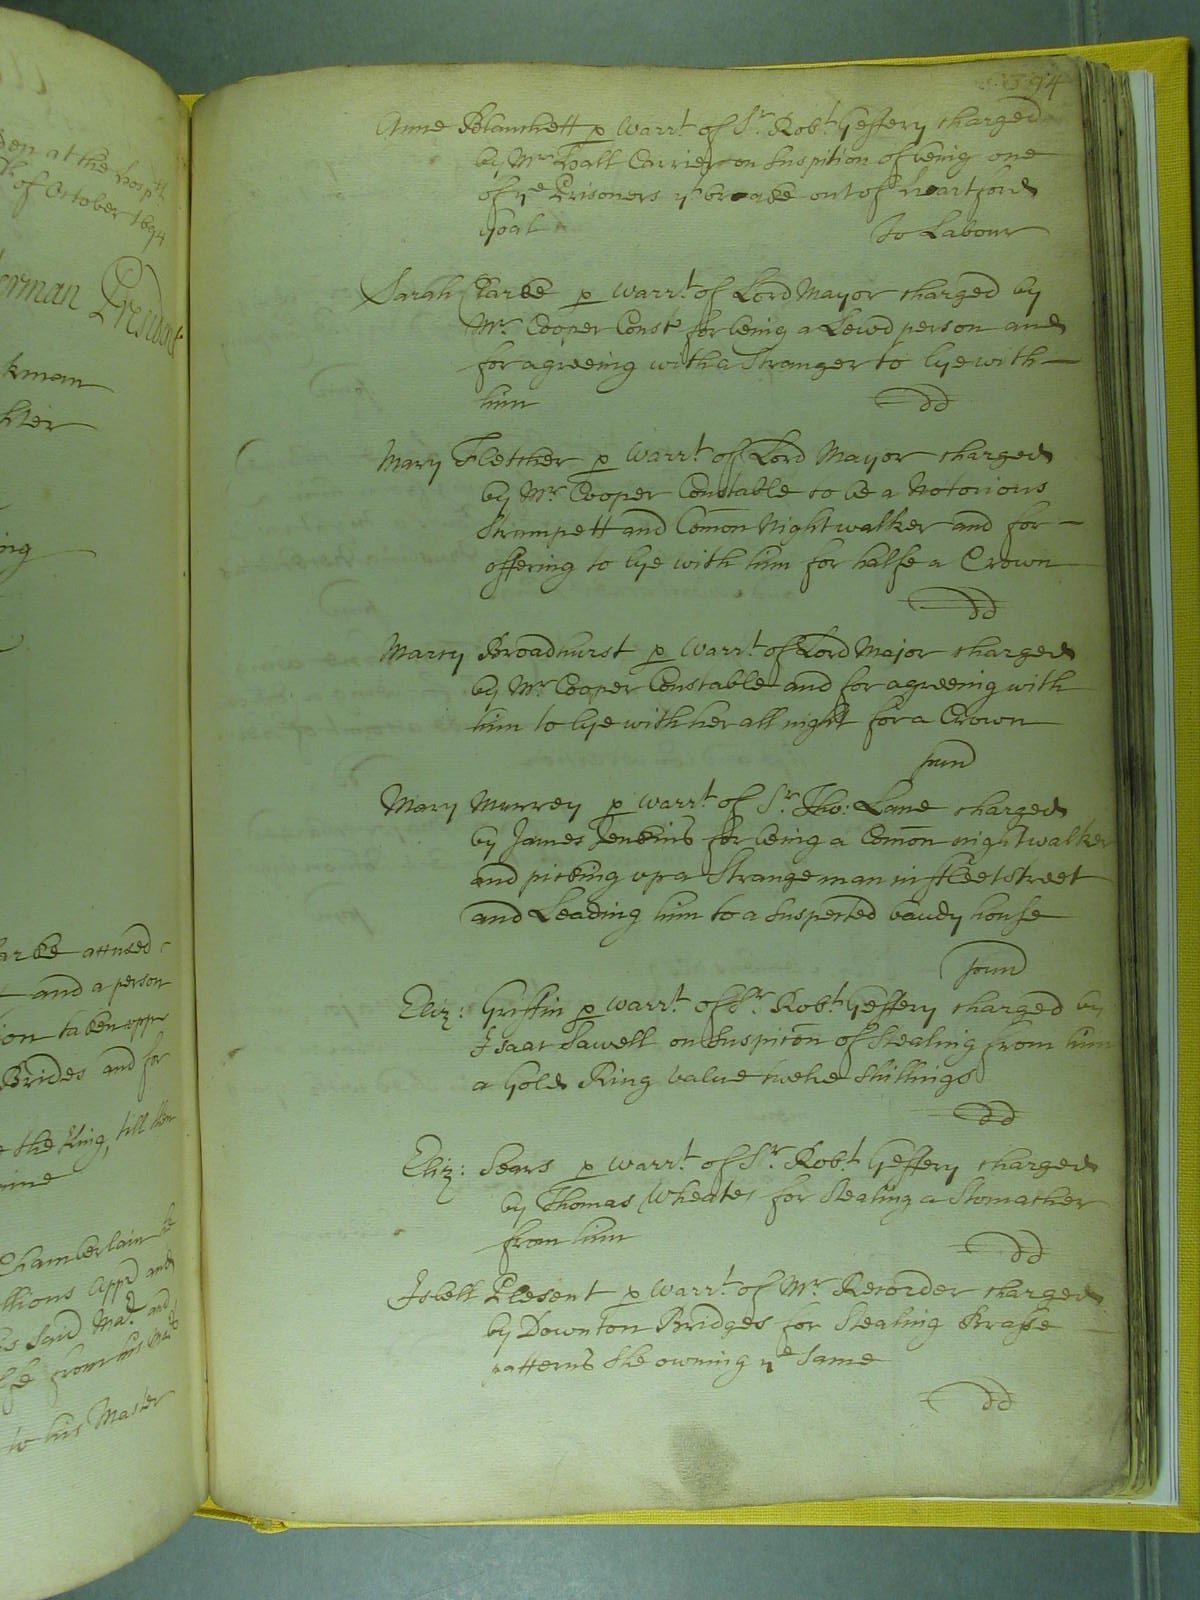 den at the hospll
th of October 1694
erman President
kman
hter
ing
arke accused
and a person
ion taken upp
Brides and for
the King, till then
mine
Chamberlain he
llions Appd and
s said Mar and
fe from his Mar
to his Master
394
Anne Blanchett p warrt. of Sr. Robt. Geffery charged
by Mr Hall Carrier on Suspition of being one
of ye Prisoners yt broake out of heartford
Goal
To Labour
Sarah Clarke p warrt. of Lord Mayor charged by
Mr. Cooper Const for being a Lewd person and
for agreeing with a Stranger to lye with
him dd
Mary Fletcher p warrt. of Lord Mayor charged
by Mr. Cooper Constable to be a Notorious
Strumpett and Comon Nightwalker and for
offering to lye with him for halfe a Crown
dd
Marey Broadhurst p warrt. of Lord Major charged
by Mr Cooper Constable and for agreeing with
him to lye with her all night for a Crown
pun
Mary Murrey p warrt. of Sr. Tho: Lane charged
by James Jenkins for being a Comon nightwalker
and picking up a Strange man in fleetstreet
and Leading him to a Suspected baudy house
pun
Eliz: Griffin p warrt. of Sr. Robt. Geffery charged by
Isaac Sawell on Suspicon of Stealing from him
a Gold Ring value twelve Shillings
dd
Eliz: Sears p warrt. of Sr. Robt. Geffery charged
by Thomas Wheates for Stealing a Stomacher
from him
dd
Isbell Plesent p warrt. of Mr. Recorder charged
by Downton Bridges for Stealing Brasse
patterns she owning ye same
dd